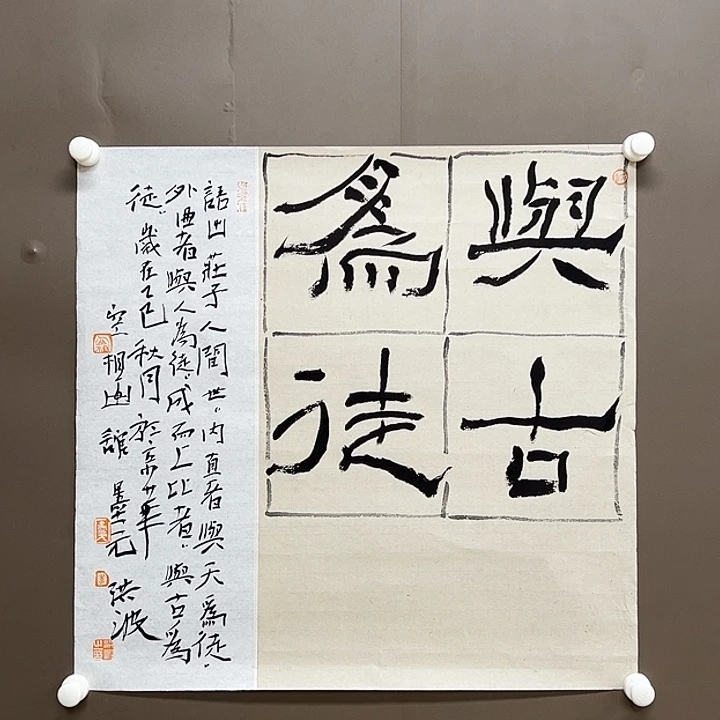 與古
爲徒
語出莊子人間世、內直者與天爲徒、
外曲者與人為徒、成而上比者、與古爲
徒、歲在乙巳秋月於京華
空相画館墨元洪波